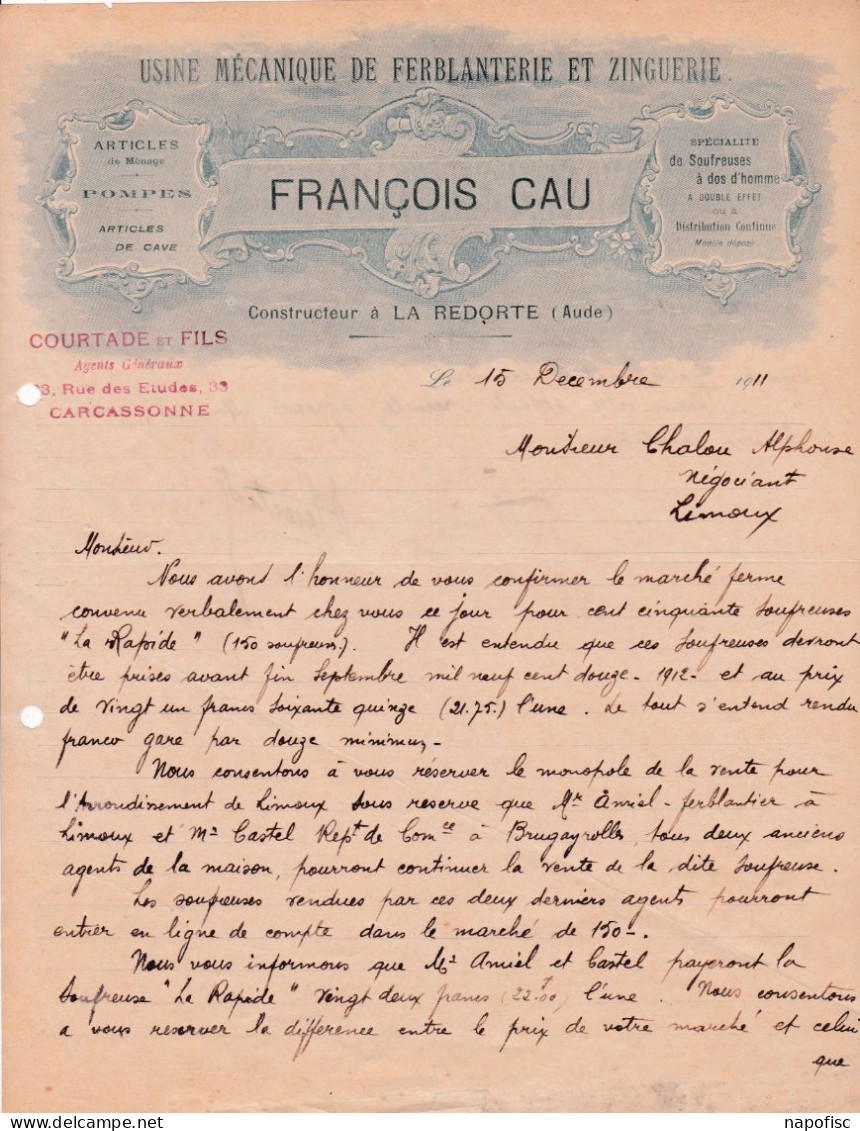 USINE MÉCANIQUE DE FERBLANTERIE ET ZINGUERIE.
ARTICLES
de Ménage
POMPES
ARTICLES
DE CAVE
FRANÇOIS CAU
SPÉCIALITÉ
de Soufreuses
à dos d'homme
A DOUBLE EFFET
ou à
Distribution Continue
Modèle déposé
Constructeur à LA REDORTE (Aude)
COURTADE ET FILS
Agents Généraux
33, Rue des Etudes, 33
CARCASSONNE
Le 15 Decembre 1911
Monsieur Chalou Alphonse
Négociant
Limoux
Monsieur.
Nous avons l'honneur de vous confirmer le marché ferme
convenu verbalement chez vous ce jour pour cent cinquante soufreuses
"La Rapide" (150 soufreuses). Il est entendu que ces soufreuses devront
être prises avant fin Septembre mil neuf cent douze - 1912 - et au prix
de vingt un francs soixante quinze (21.75.) l'une. Le tout s'entend rendu
franco gare par douze minimum -
Nous consentons à vous réserver le monopole de la vente pour
l'Arrondissement de Limoux sous reserve que Mr. Amiel - ferblantier à
Limoux et Mr Castel Rept de Comce à Brugayrolles, tous deux anciens
agents de la maison, pourront continuer la vente de la dite soufreuse.
Les soufreuses vendues par ces deux derniers agents pourront
entrer en ligne de compte dans le marché de 150 -.
Nous vous informons que Mrs Amiel et Castel payeront la
soufreuse "La Rapide" vingt deux francs (22f.00) l'une. Nous consentons
a vous reserver la difference entre le prix de votre marché et celui
que
napofisc © Delcampe